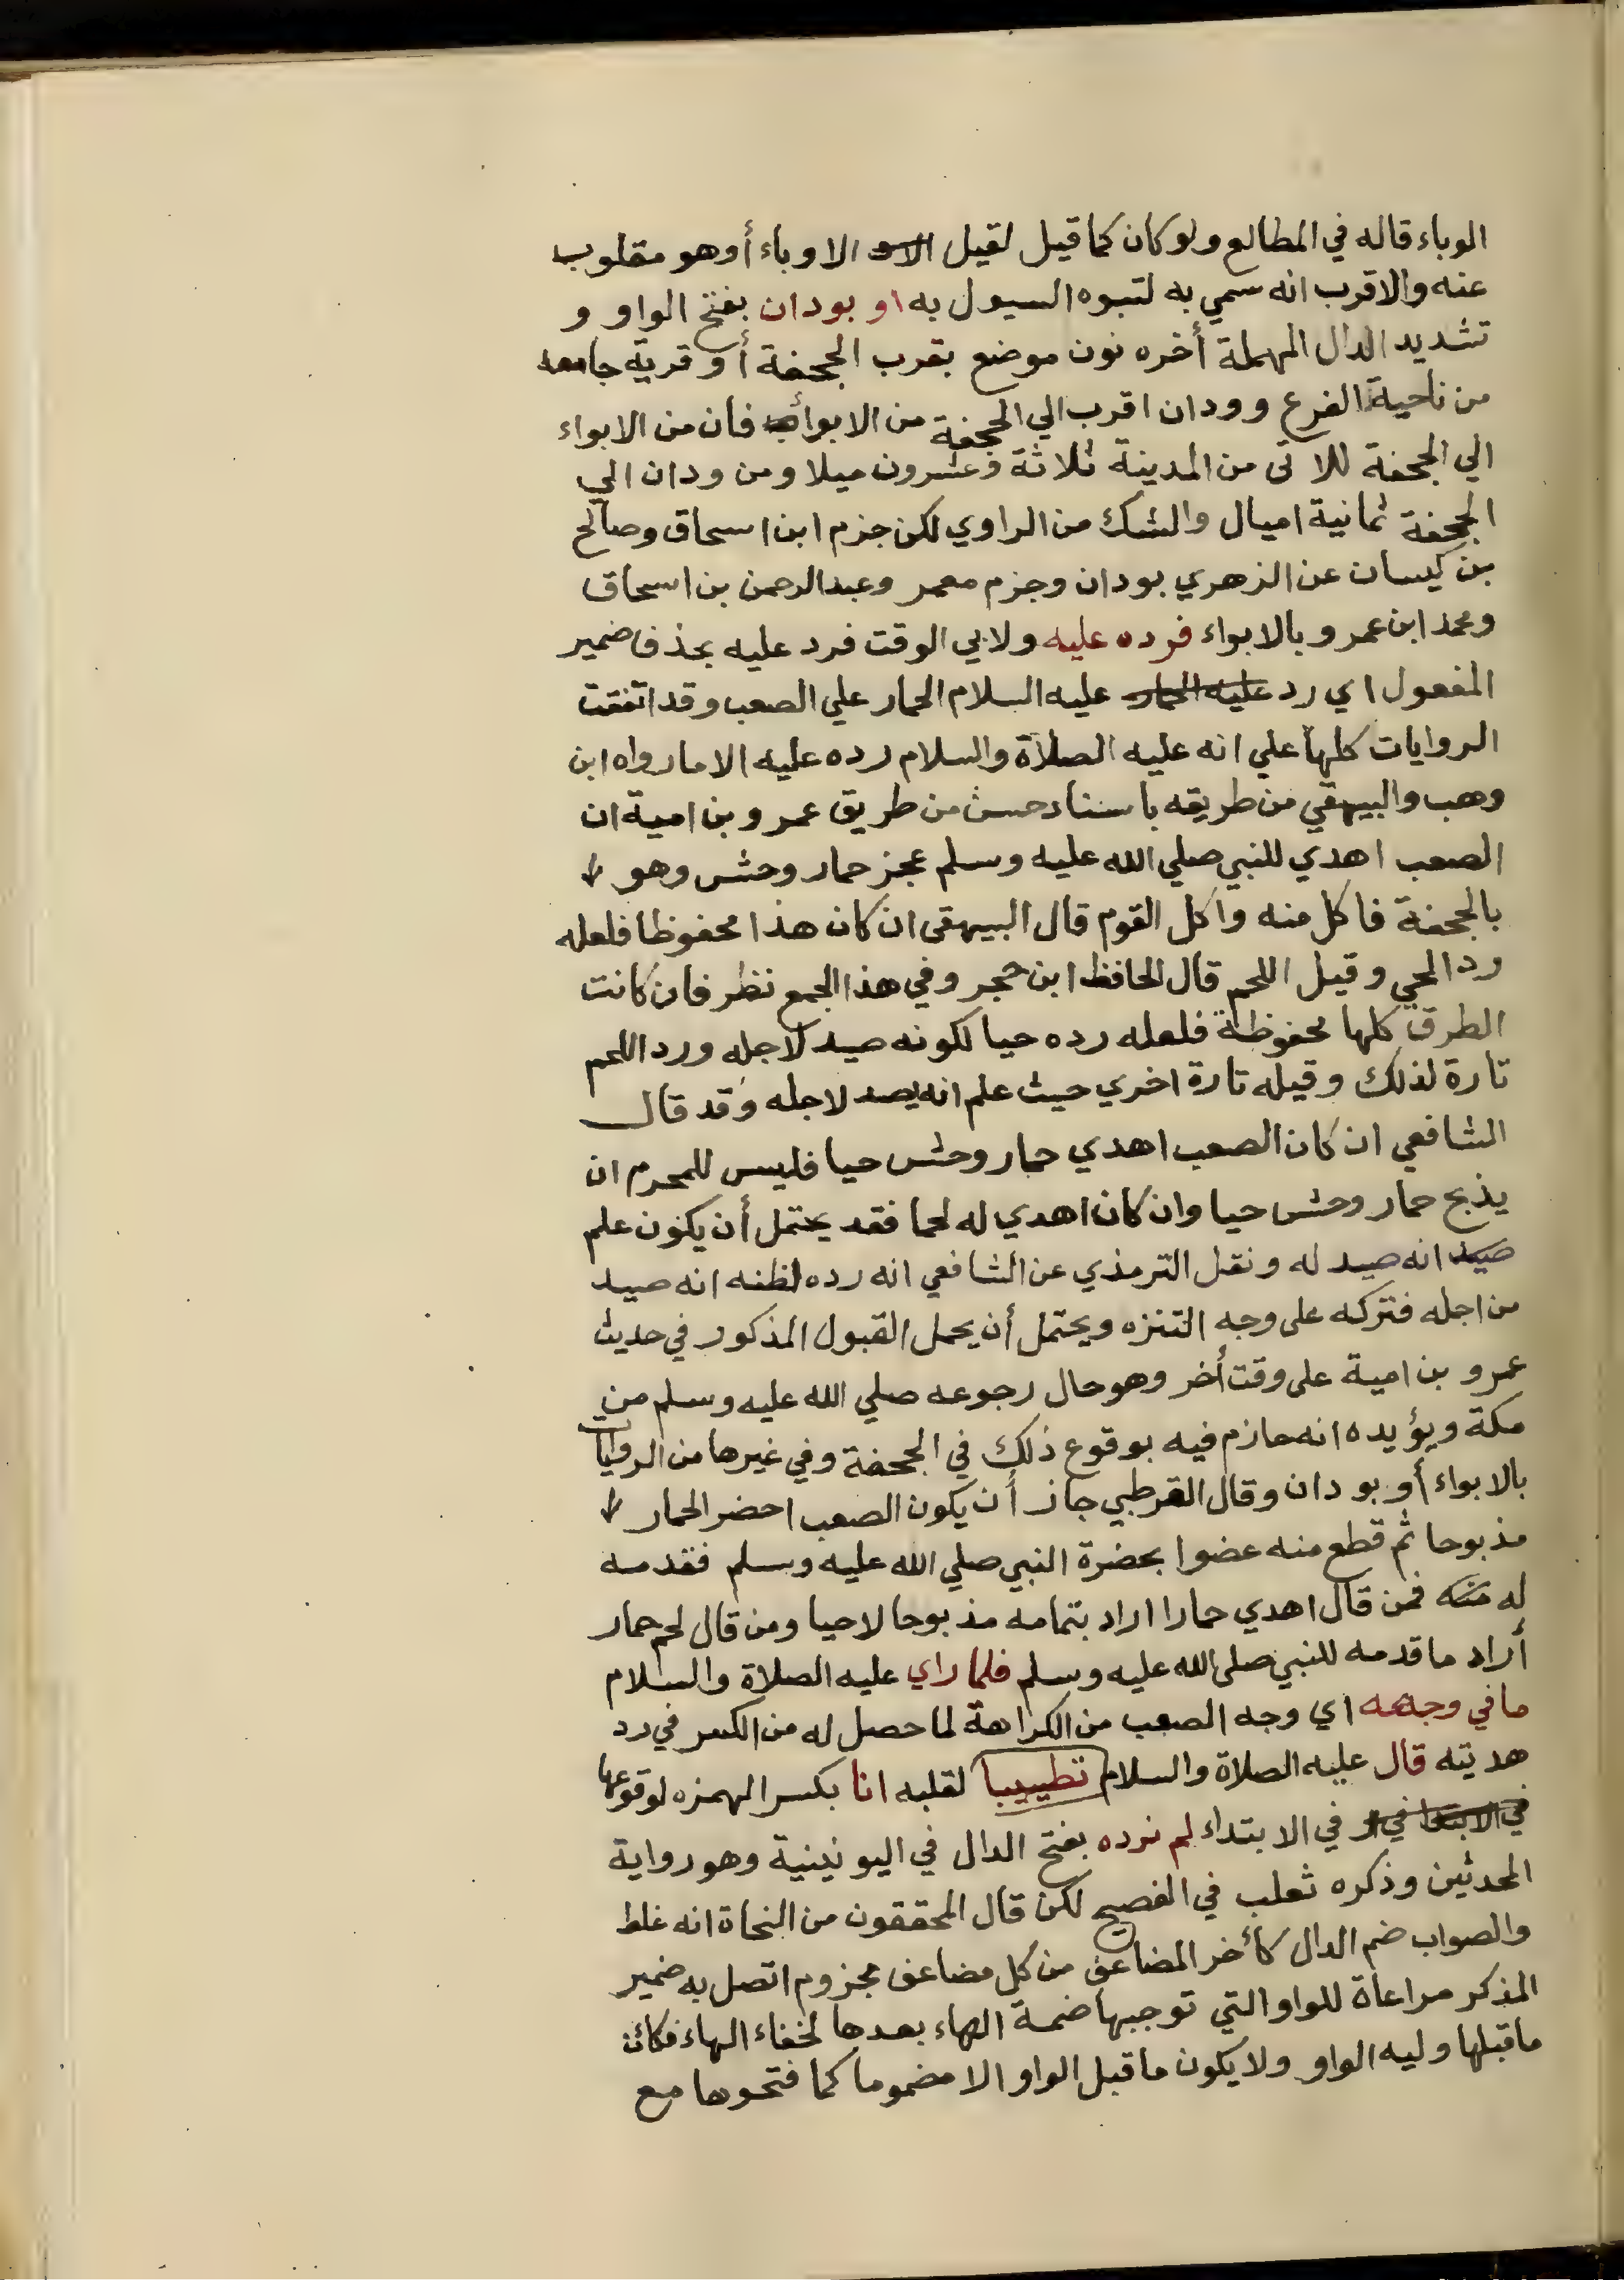 الوباء قاله في المطالع ولو كان كما قيل لقيل الاو الاوباء أو هو مقلوب
عنه والاقرب انه سمي به لتبوه السيول به او بودان بفتح الواو و
تشديد الدال المهملة أخره نون موضع بقرب الجحفة أو قرية جامعه
من ناحية الفرع وودان اقرب الي الجحفة من الابواء فان من الابواء
الي الجحفة للاتى من المدينة ثلاثة وعشرون ميلا ومن ودان الي
الجحفة ثمانية اميال والشك من الراوي لكن جزم ابن اسحاق وصالح
بن كيسان عن الزهري بودان وجزم معمر وعبد الرحمن بن اسحاق
ومحمد ابن عمرو بالابواء فرده عليه ولابي الوقت فرد عليه بحذف ضمير
المفعول اي رد عليه الحمار عليه السلام الحمار علي الصعب وقد اتفقت
الروايات كلها علي انه عليه الصلاة والسلام رده عليه الا ما رواه ابن
وهب والبيهقي من طريقه باسناد حسن من طريق عمرو بن امية ان
الصعب اهدي للنبي صلي الله عليه وسلم عجز حمار وحش وهو
بالجحفة فاكل منه واكل القوم قال البيهقى ان كان هذا محفوظا فلعله
رد الحي وقيل اللحم قال الحافظ ابن حجر وفي هذا الجمع نظر فان كانت
الطرق كلها محفوظة فلعله رده حيا لكونه صيد لاجله ورد اللحم
تارة لذلك وقيله تارة اخري حيث علم انه يصد لاجله وقد قال
الشافعي ان كان الصعب اهدي حمار وحش حيا فليس للمحرم ان
يذبح حمار وحش حيا وان كان اهدي له لحما فقد يحتمل أن يكون علم
صيد انه صيد له ونقل الترمذي عن الشافعي انه رده لظنه انه صيد
من اجله فتركه على وجه التنزه ويحتمل أن يحمل القبول المذكور في حديث
عمرو بن امية على وقت أخر وهو حال رجوعه صلي الله عليه وسلم من
مكة ويؤيده انه حازم فيه بوقوع ذلك في الجحفة وفي غيرها من الروايات
بالابواء أو بودان وقال القرطبي جاز أن يكون الصعب احضر الحمار
مذبوحا ثم قطع منه عضوا بحضرة النبي صلي الله عليه وسلم فقدمه
له منه فمن قال اهدي حمارا اراد بتمامه مذبوحا لا حيا ومن قال لحم حمار
أراد ما قدمه للنبي صلى الله عليه وسلم فلما راي عليه الصلاة والسلام
ما في وجهه اي وجه الصعب من الكراهة لما حصل له من الكسر في رد
هديته قال عليه الصلاة والسلام تطييبا لقلبه انا بكسر الهمزه لوقوعها
في الابتدا في ا في الابتداء لم نرده بفتح الدال في اليونينية وهو رواية
المحدثين وذكره ثعلب في الفصيح لكن قال المحققون من النحاة انه غلط
والصواب ضم الدال كأخر المضاعف من كل مضاعف مجزوم اتصل به ضمير
المذكر مراعاة للواو التي توجبها ضمة الهاء بعدها لخفاء الهاء فكان
ما قبلها وليه الواو ولا يكون ما قبل الواو الا مضموما كما فتحوها مع